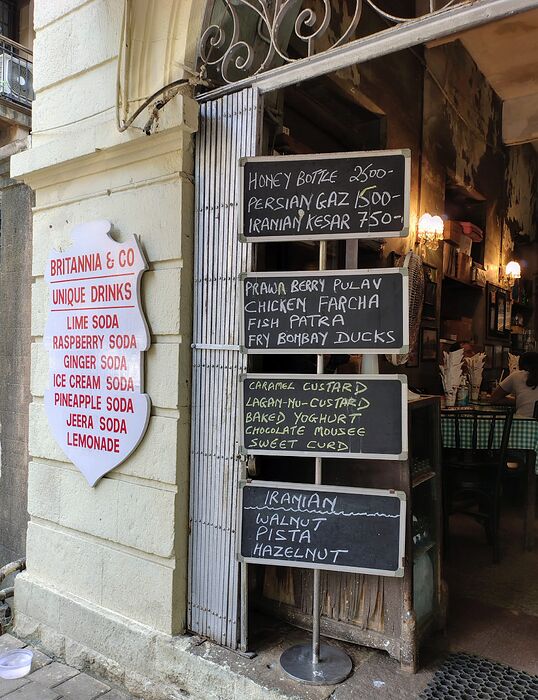 BRITANNIA & CO
UNIQUE DRINKS
LIME SODA
RASPBERRY SODA
GINGER SODA
ICE CREAM SODA
PINEAPPLE SODA
JEERA SODA
LEMONADE
HONEY BOTTLE 2500-
PERSIAN GAZ 1500-
IRANIAN KESAR 750-
PRAWA BERRY PULAV
CHICKEN FARCHA
FISH PATRA
FRY BOMBAY DUCKS
CARAMEL CUSTARD
LAGAN-NU-CUSTARD
BAKED YOGHURT
CHOCOLATE MOUSEE
SWEET CURD
IRANIAN
WALNUT
PISTA
HAZELNUT